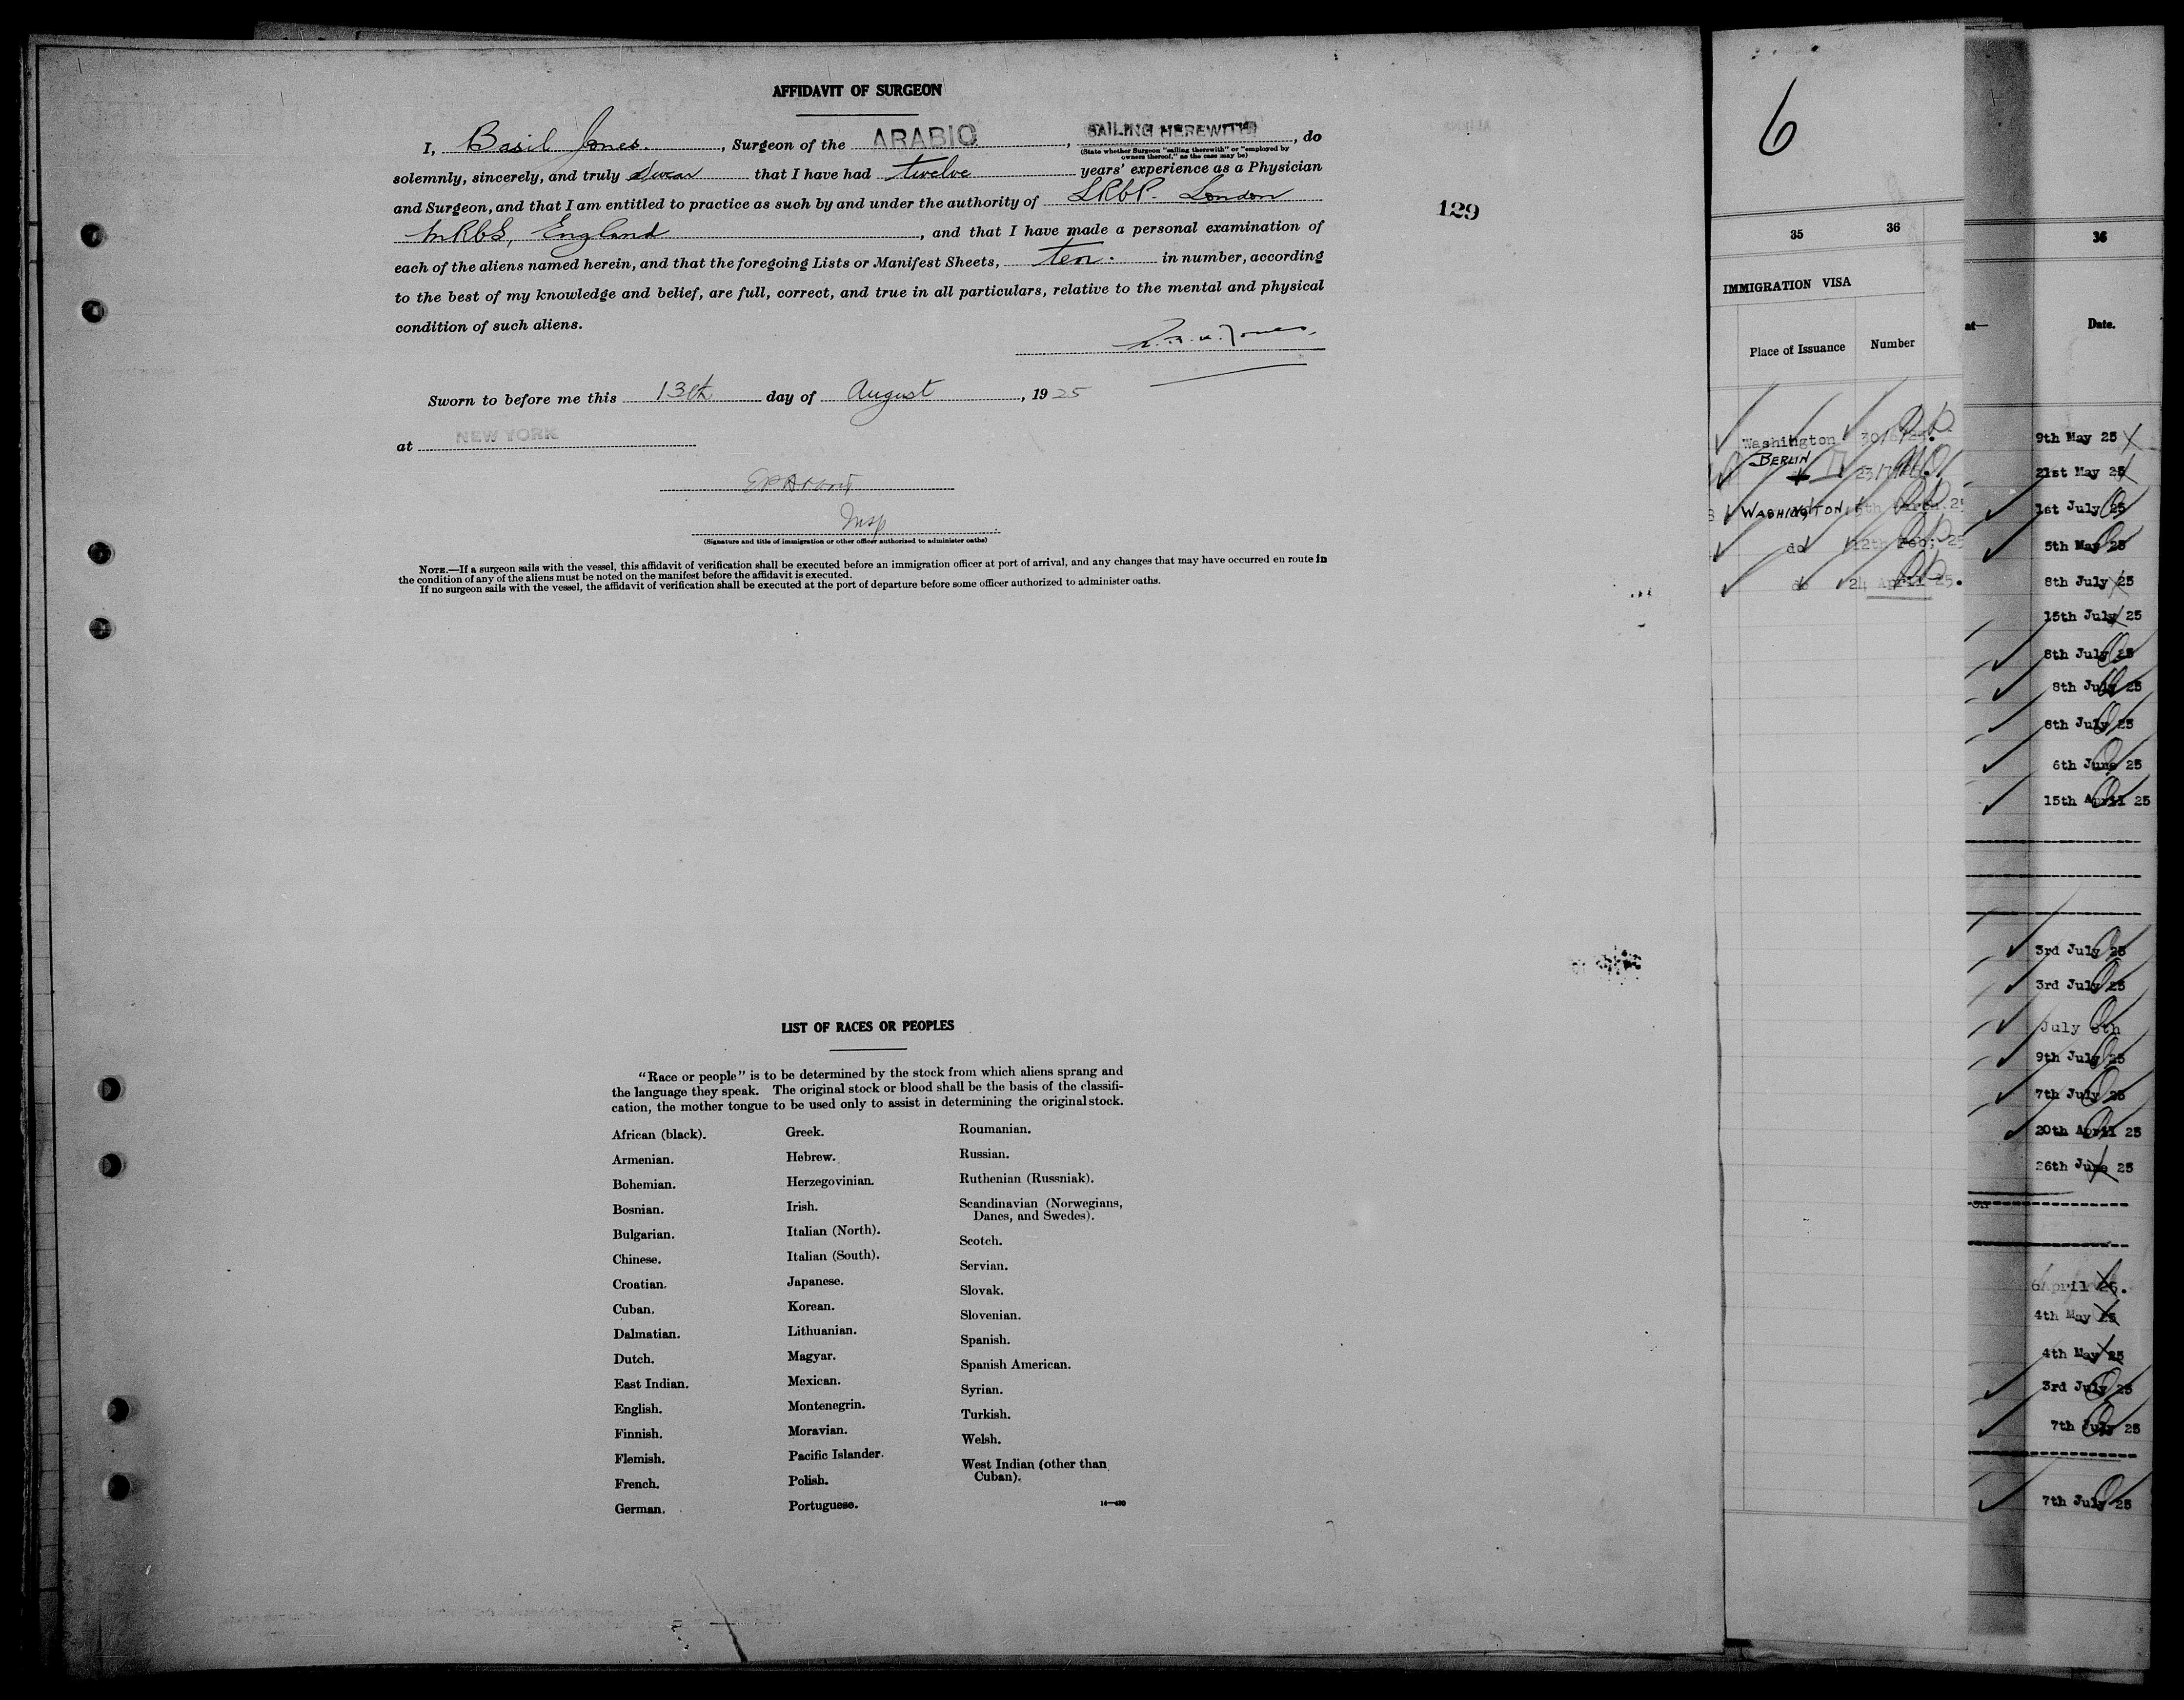 AFFIDAVIT OF SURGEON
I, Basil Jones. , Surgeon of the ARABIC , SAILING HEREWITH , do
(State whether Surgeon "sailing therewith" or "employed by
owners thereof," as the case may be)
solemnly, sincerely, and truly swear that I have had twelve years' experience as a Physician
and Surgeon, and that I am entitled to practice as such by and under the authority of LRCP. London
MRCS, England , and that I have made a personal examination of
each of the aliens named herein, and that the foregoing Lists or Manifest Sheets, ten. in number, according
to the best of my knowledge and belief, are full, correct, and true in all particulars, relative to the mental and physical
condition of such aliens.
Jones.
Sworn to before me this 13th day of August , 1925
at NEW YORK
Insp
(Signature and title of immigration or other officer authorized to administer oaths)
NOTE.—If a surgeon sails with the vessel, this affidavit of verification shall be executed before an immigration officer at port of arrival, and any changes that may have occurred en route in
the condition of any of the aliens must be noted on the manifest before the affidavit is executed.
If no surgeon sails with the vessel, the affidavit of verification shall be executed at the port of departure before some officer authorized to administer oaths.
129
LIST OF RACES OR PEOPLES
"Race or people" is to be determined by the stock from which aliens sprang and
the language they speak. The original stock or blood shall be the basis of the classifi-
cation, the mother tongue to be used only to assist in determining the original stock.
African (black).
Armenian.
Bohemian.
Bosnian.
Bulgarian.
Chinese.
Croatian.
Cuban.
Dalmatian.
Dutch.
East Indian.
English.
Finnish.
Flemish.
French.
German.
Greek.
Hebrew.
Herzegovinian.
Irish.
Italian (North).
Italian (South).
Japanese.
Korean.
Lithuanian.
Magyar.
Mexican.
Montenegrin.
Moravian.
Pacific Islander.
Polish.
Portuguese.
Roumanian.
Russian.
Ruthenian (Russniak).
Scandinavian (Norwegians,
Danes, and Swedes).
Scotch.
Servian.
Slovak.
Slovenian.
Spanish.
Spanish American.
Syrian.
Turkish.
Welsh.
West Indian (other than
Cuban).
6
35 36
IMMIGRATION VISA
Place of Issuance Number
Washington
BERLIN
WASHINGTON
do 12th Feb; 25
do 24 April 25.
36
Date.
9th May 25
21st May 25
1st July 25
5th May 25
8th July 25
15th July 25
8th July 25
8th July 25
8th July 25
6th June 25
15th April 25
3rd July 25
3rd July 25
July 8th
9th July 25
7th July 25
20th April 25
26th June 25
6 April 25.
4th May 25
4th May 25
3rd July 25
7th July 25
7th July 25